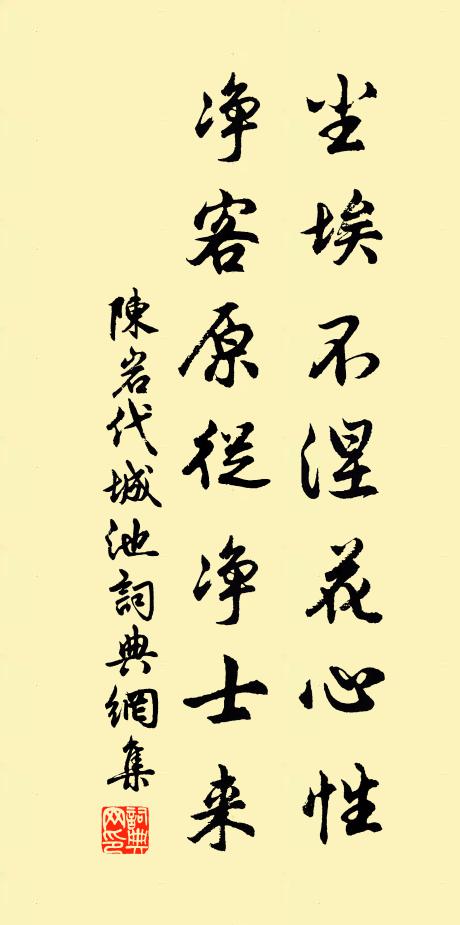 尘埃不涅花心性
净客原從净士来
陳岩代城池詞典網集
詞典
网印